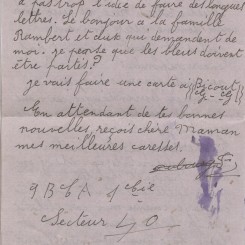 a pas trop l'idée de faire des longues
lettres. Le bonjour à la famille
Rambert et ceux qui demandent de
moi. je pense que les bleus doivent
être partis?
je vais faire une carte à
En attendant de tes bonnes
nouvelles, reçois chère Maman
mes meilleures caresses.
9 B C A 1 Cie
Secteur 40